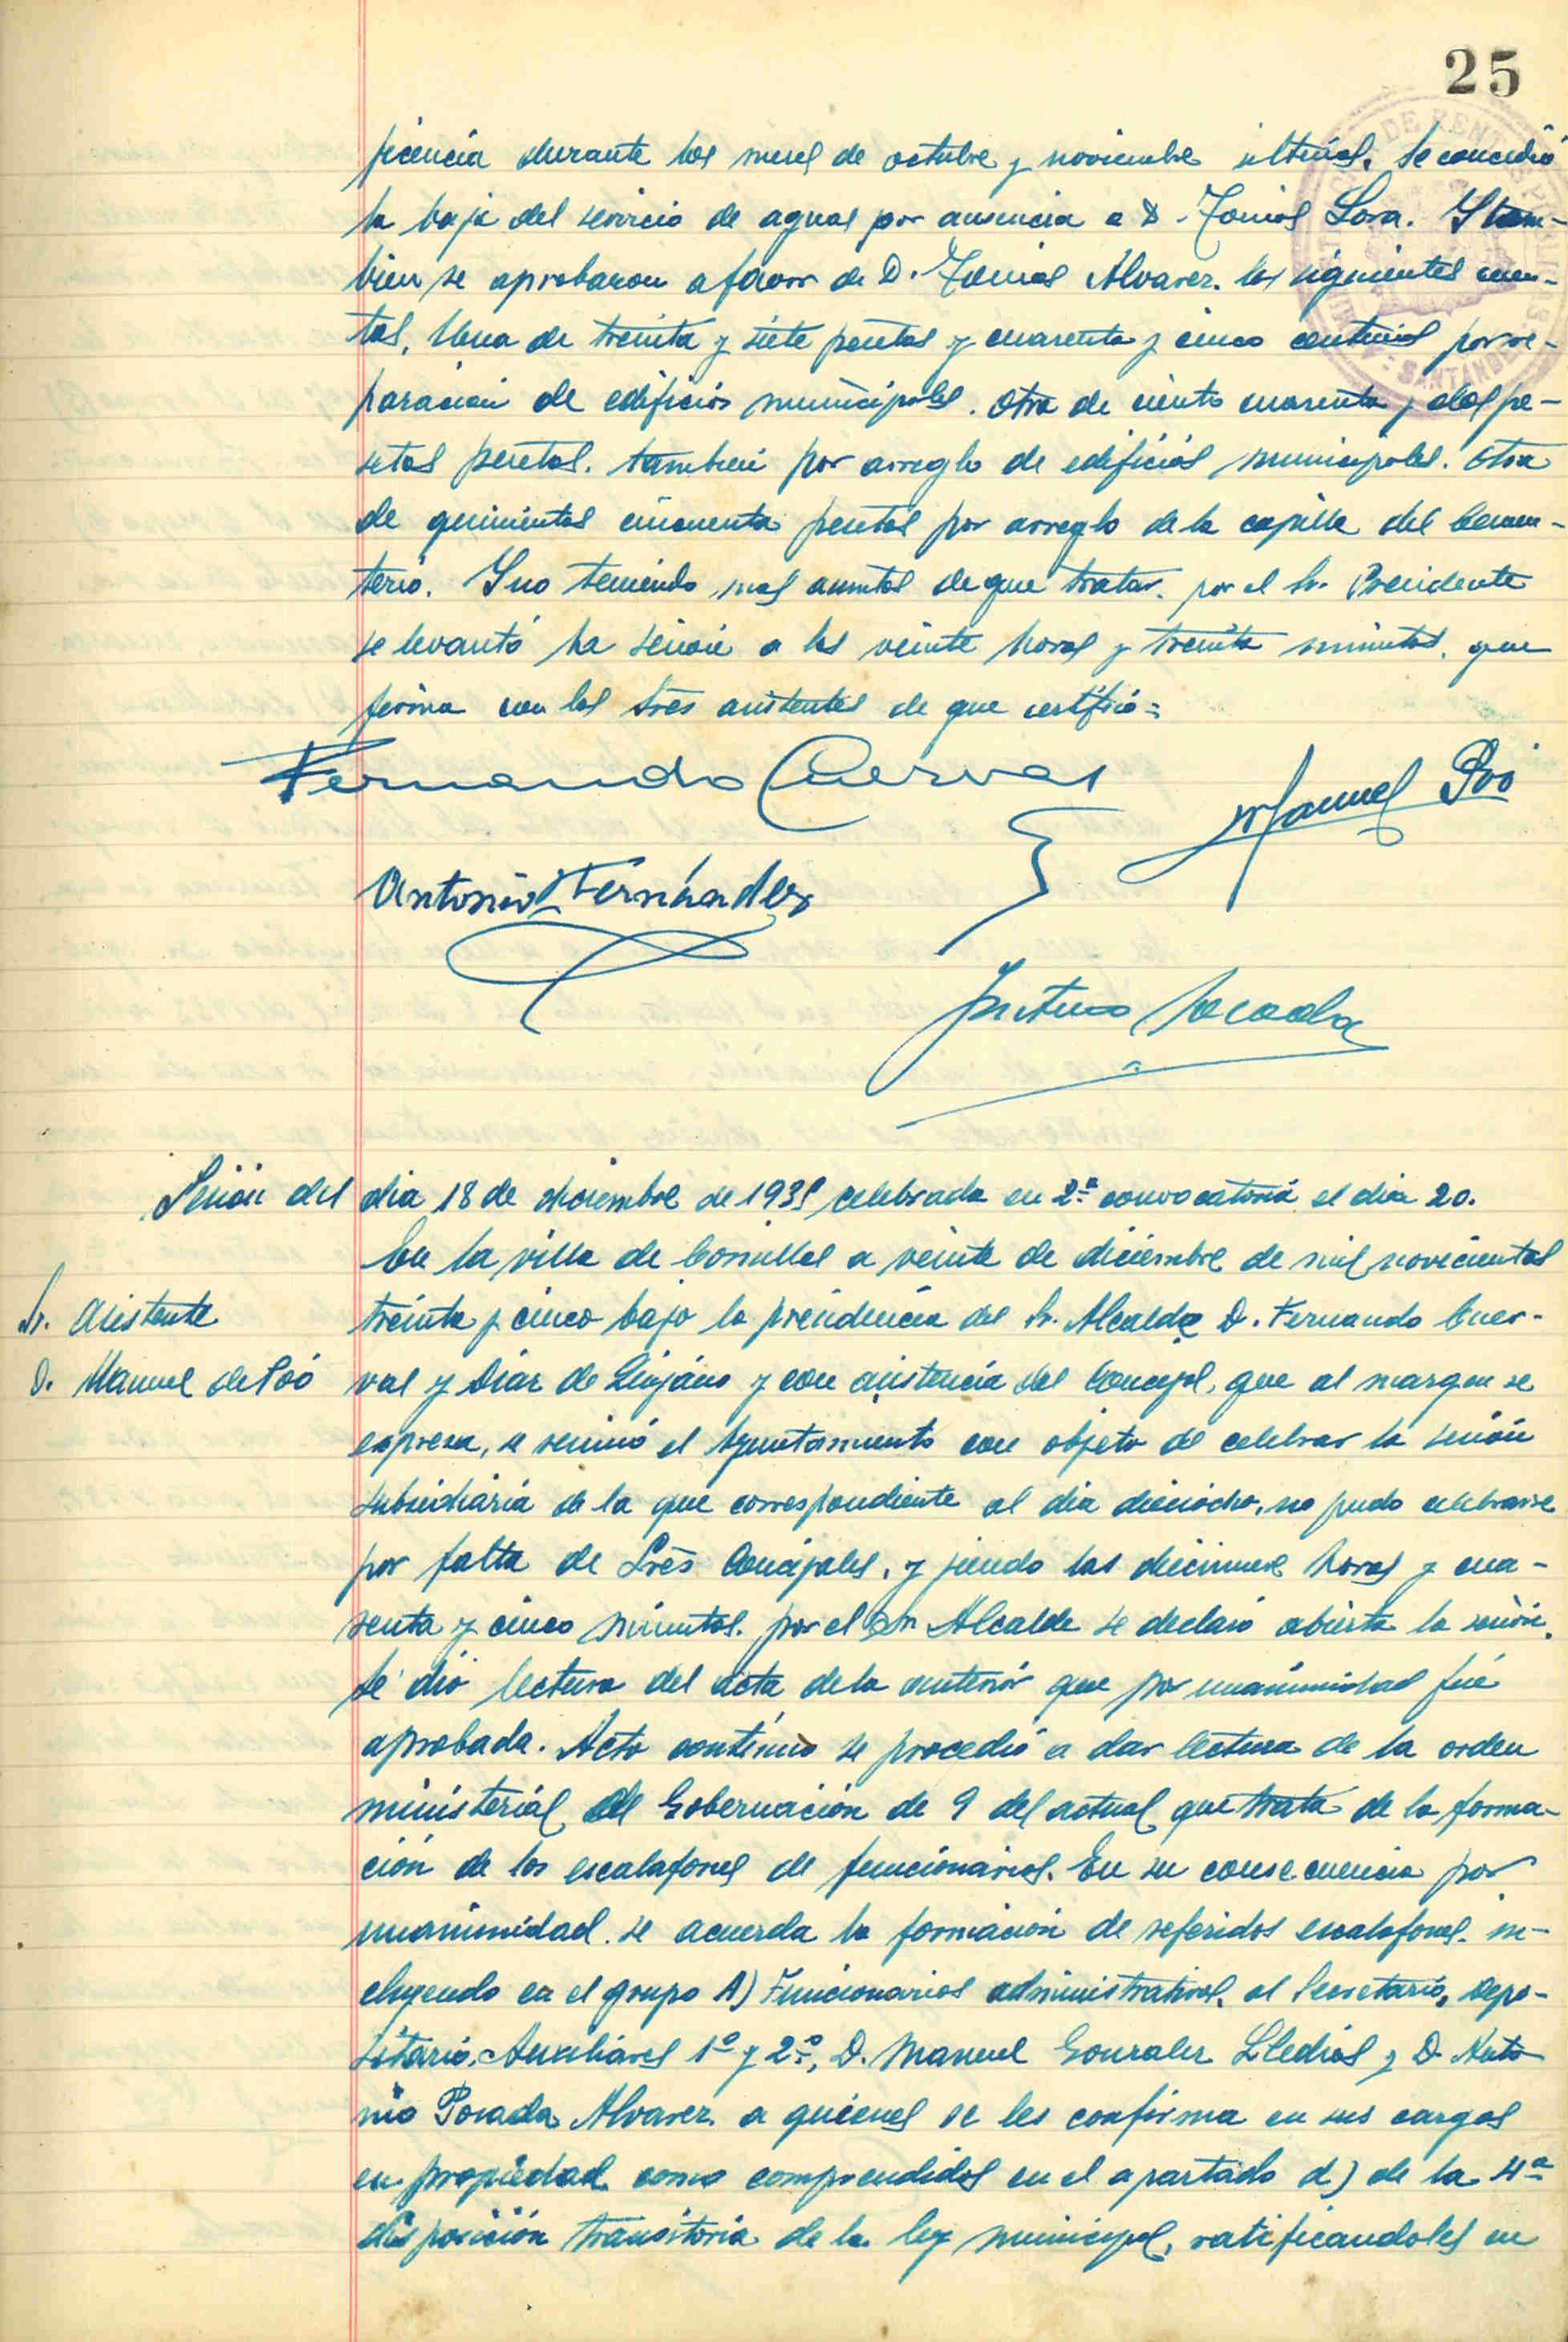 25
ficencia durante los meses de octubre y noviembre ultimos. Se concedió
la baja del servicio de aguas por ausencia a D. Tomás Lora. Y tam-
bien se aprobaron a favor de D. Tomás Alvarez. las siguientes cuen-
tas, Una de treinta y siete pesetas y cuarenta y cinco centimos por re-
paración de edificios municipales. Otra de ciento cuarenta y dos pe-
setas pesetas. tambien por arreglo de edificios municipales. Otra
de quinientas cincuenta pesetas por arreglo de la capilla del Cemen-
terio. Y no teniendo mas asuntos de que tratar. por el Sr. Presidente
se levantó la sesión a las veinte horas y treinta minutos. que
firma con los tres asistentes de que certifico=
Fernando Cuervas
Manuel Poo
Antonio Fernández
Sesión del dia 18 de diciembre de 1935 celebrada en 2ª convocatoria el dia 20.
En la villa de Comillas a veinte de diciembre de mil novecientos
Sr. Asistente
treinta y cinco bajo la presidencia del Sr. Alcalde D. Fernando Cuer-
D. Manuel de Poó
vas y Diaz de Quijano y con asistencia del Concejal, que al margen se
expresa, se reunió el Ayuntamiento con objeto de celebrar la sesión
subsidiaria de la que correspondiente al dia dieciocho, no pudo celebrarse
por falta de Srēs Concejales, y siendo las diecinueve horas y cua-
renta y cinco minutos. por el Sr. Alcalde se declaró abierta la sesión.
Se dió lectura del acta de la anterior que por unanimidad fué
aprobada. Acto contínuo se procedió a dar lectura de la orden
ministerial de Gobernación de 9 del actual que trata de la forma-
ción de los escalafones de funcionarios. En su consecuencia por
unanimidad. se acuerda la formación de referidos escalafones. in-
cluyendo en el grupo A) Funcionarios administrativos. al Secretario, Depo-
sitario. Auxiliares 1º y 2º, D. Manuel Gonzalez Lledías y D. Anto
nio Posada Alvarez. a quienes se les confirma en sus cargos
en propiedad como comprendidos en el apartado d) de la 4ª
disposición transitoria de la ley municipal, ratificandoles en